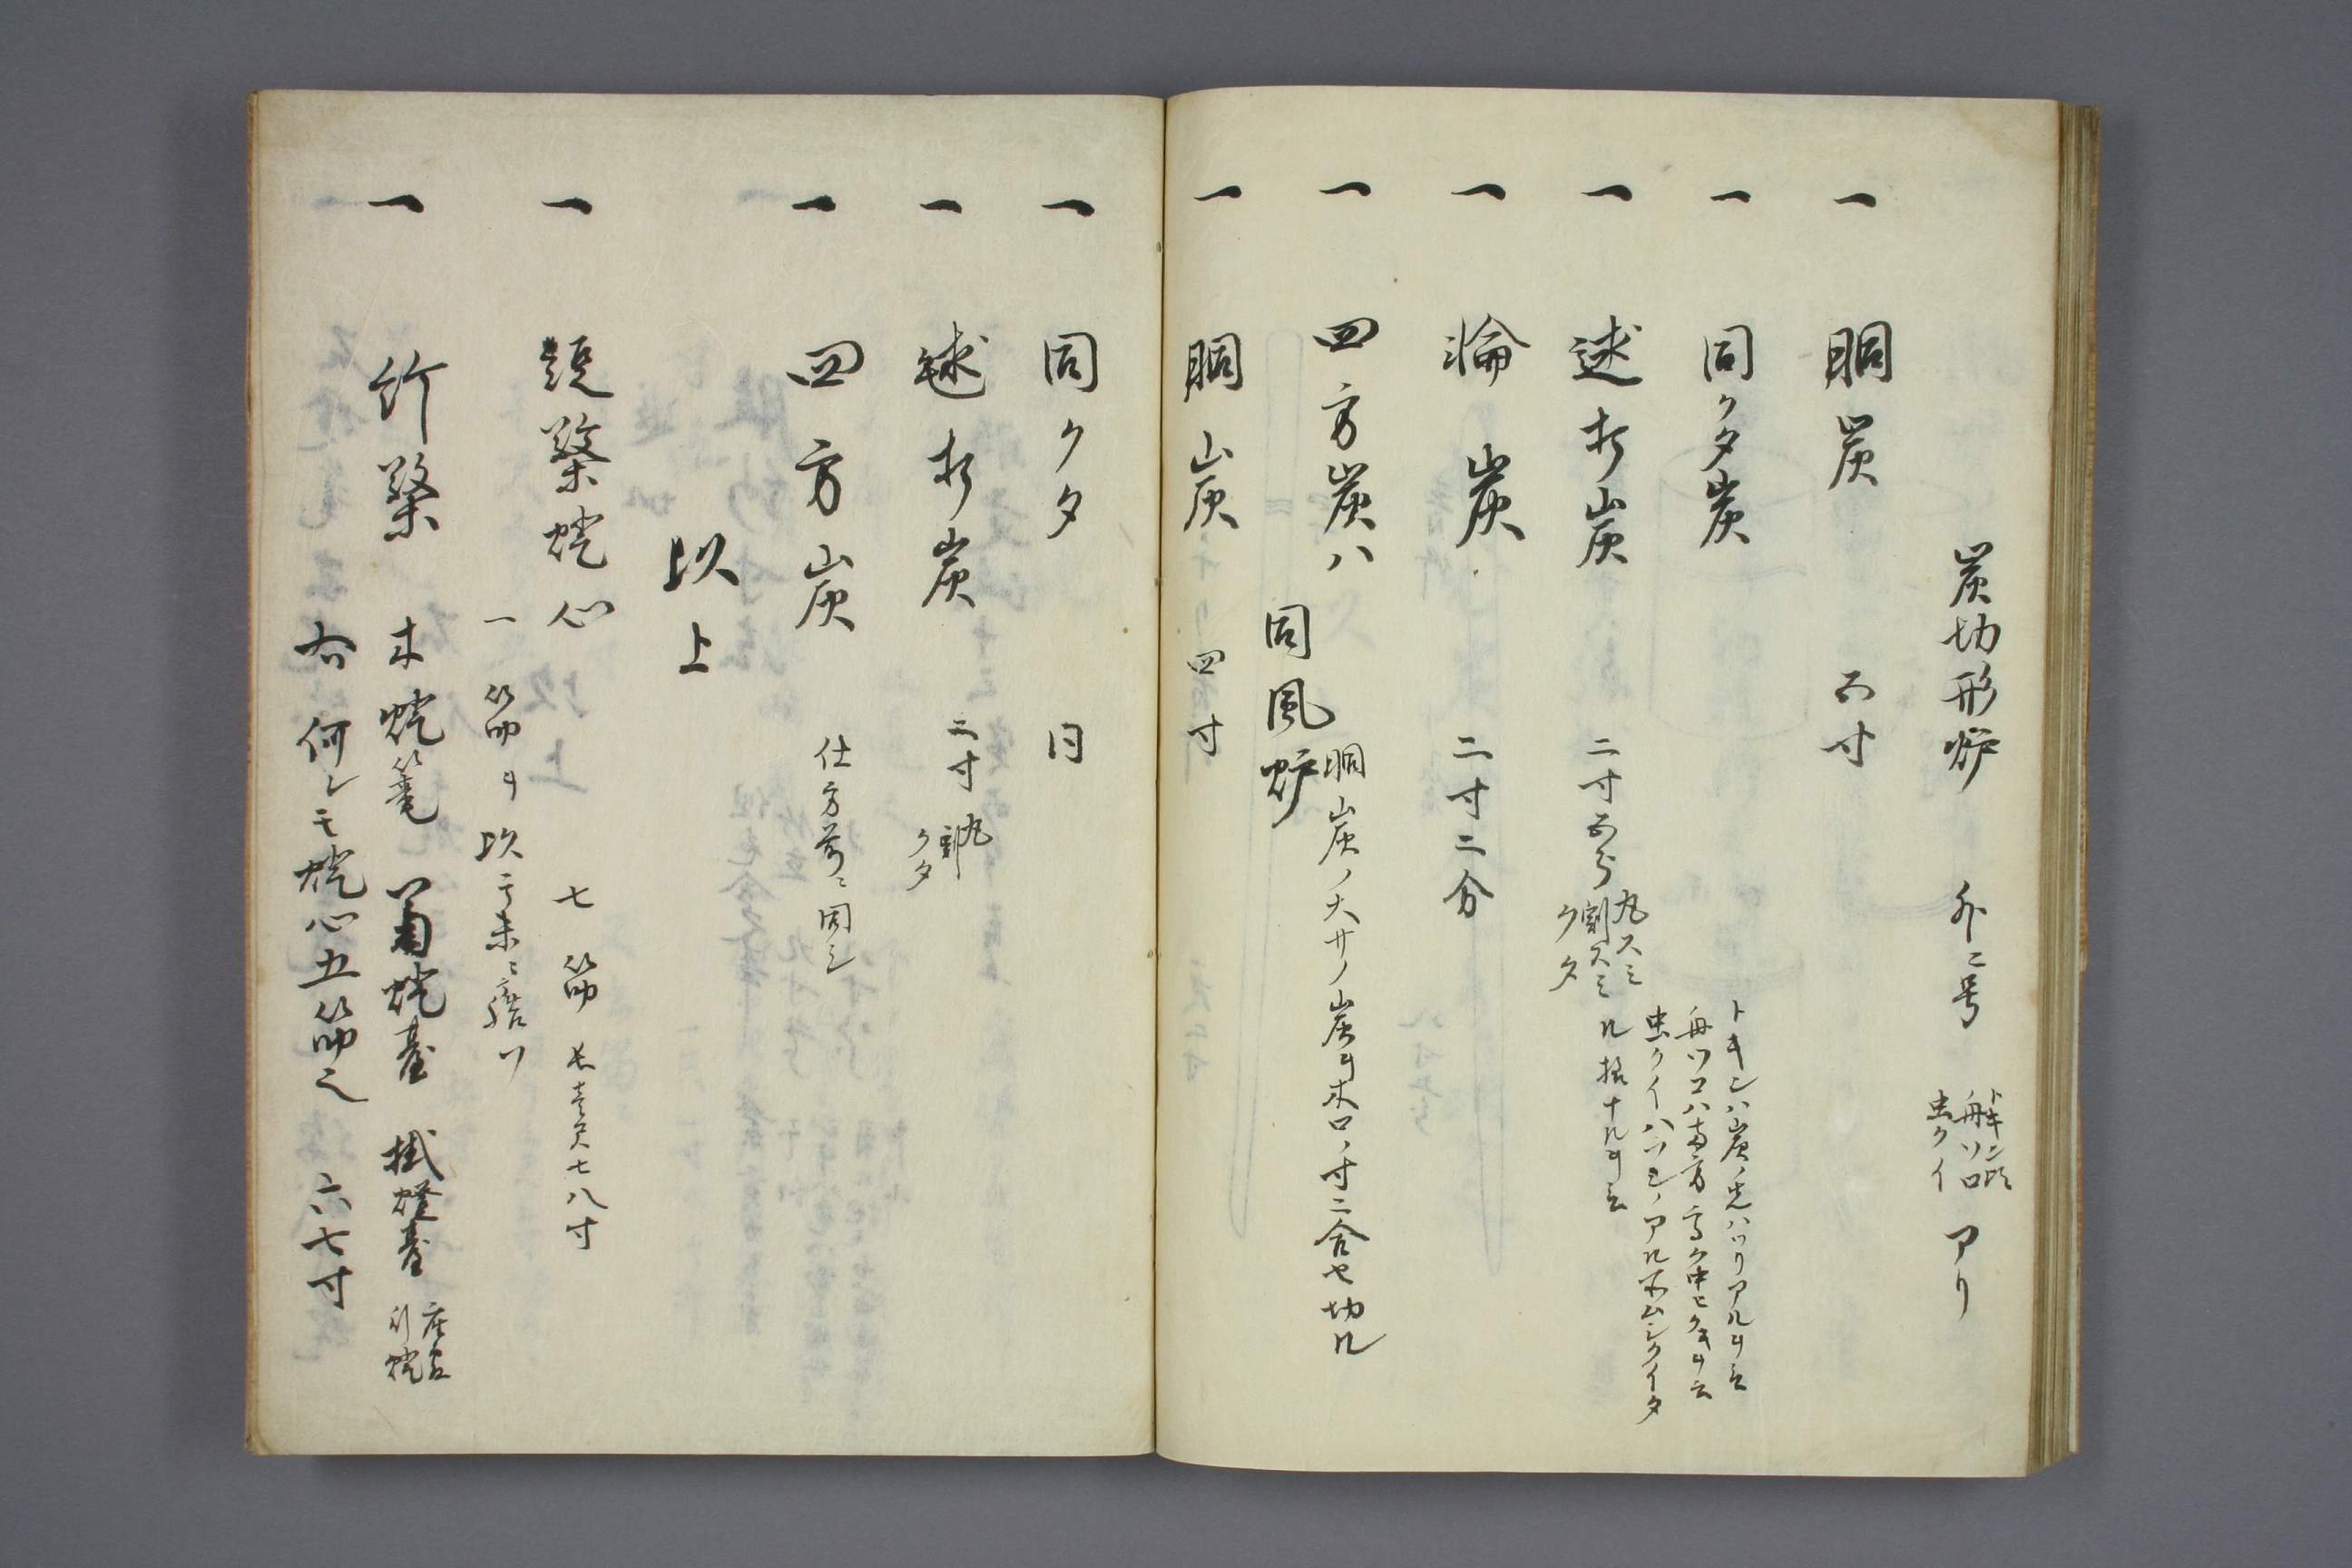 炭切形炉 外ニ号 トキン頭 舟ソロ 虫クイ アリ
一 胴炭 五寸
一 同クタ炭
トキンハ炭ノ先ハツリアルヲ云
舟ソロハ両方高ク中ヒクキヲ云
虫クイハフシノアル所ムシクイタ
ル様ナルヲ云
一 毬打炭 二寸五分 丸スミ 割スミ クタ
一 輪炭 二寸二分
一 四方炭ハ 胴炭ノ大サノ炭ヲ木口ノ寸ニ合セ切ル
同風炉
一 胴炭 四寸
一 同クタ 同
一 毬打炭 二寸 丸 割 クタ
一 四方炭 仕方前ニ同シ
以上
一 短檠燈心 七筋 長壱尺七八寸
一筋ヲ以テ未ニ結フ
一 竹檠 木燈篭 菊燈臺 掛燈臺 行燈
右何レモ燈心五筋之 六七寸